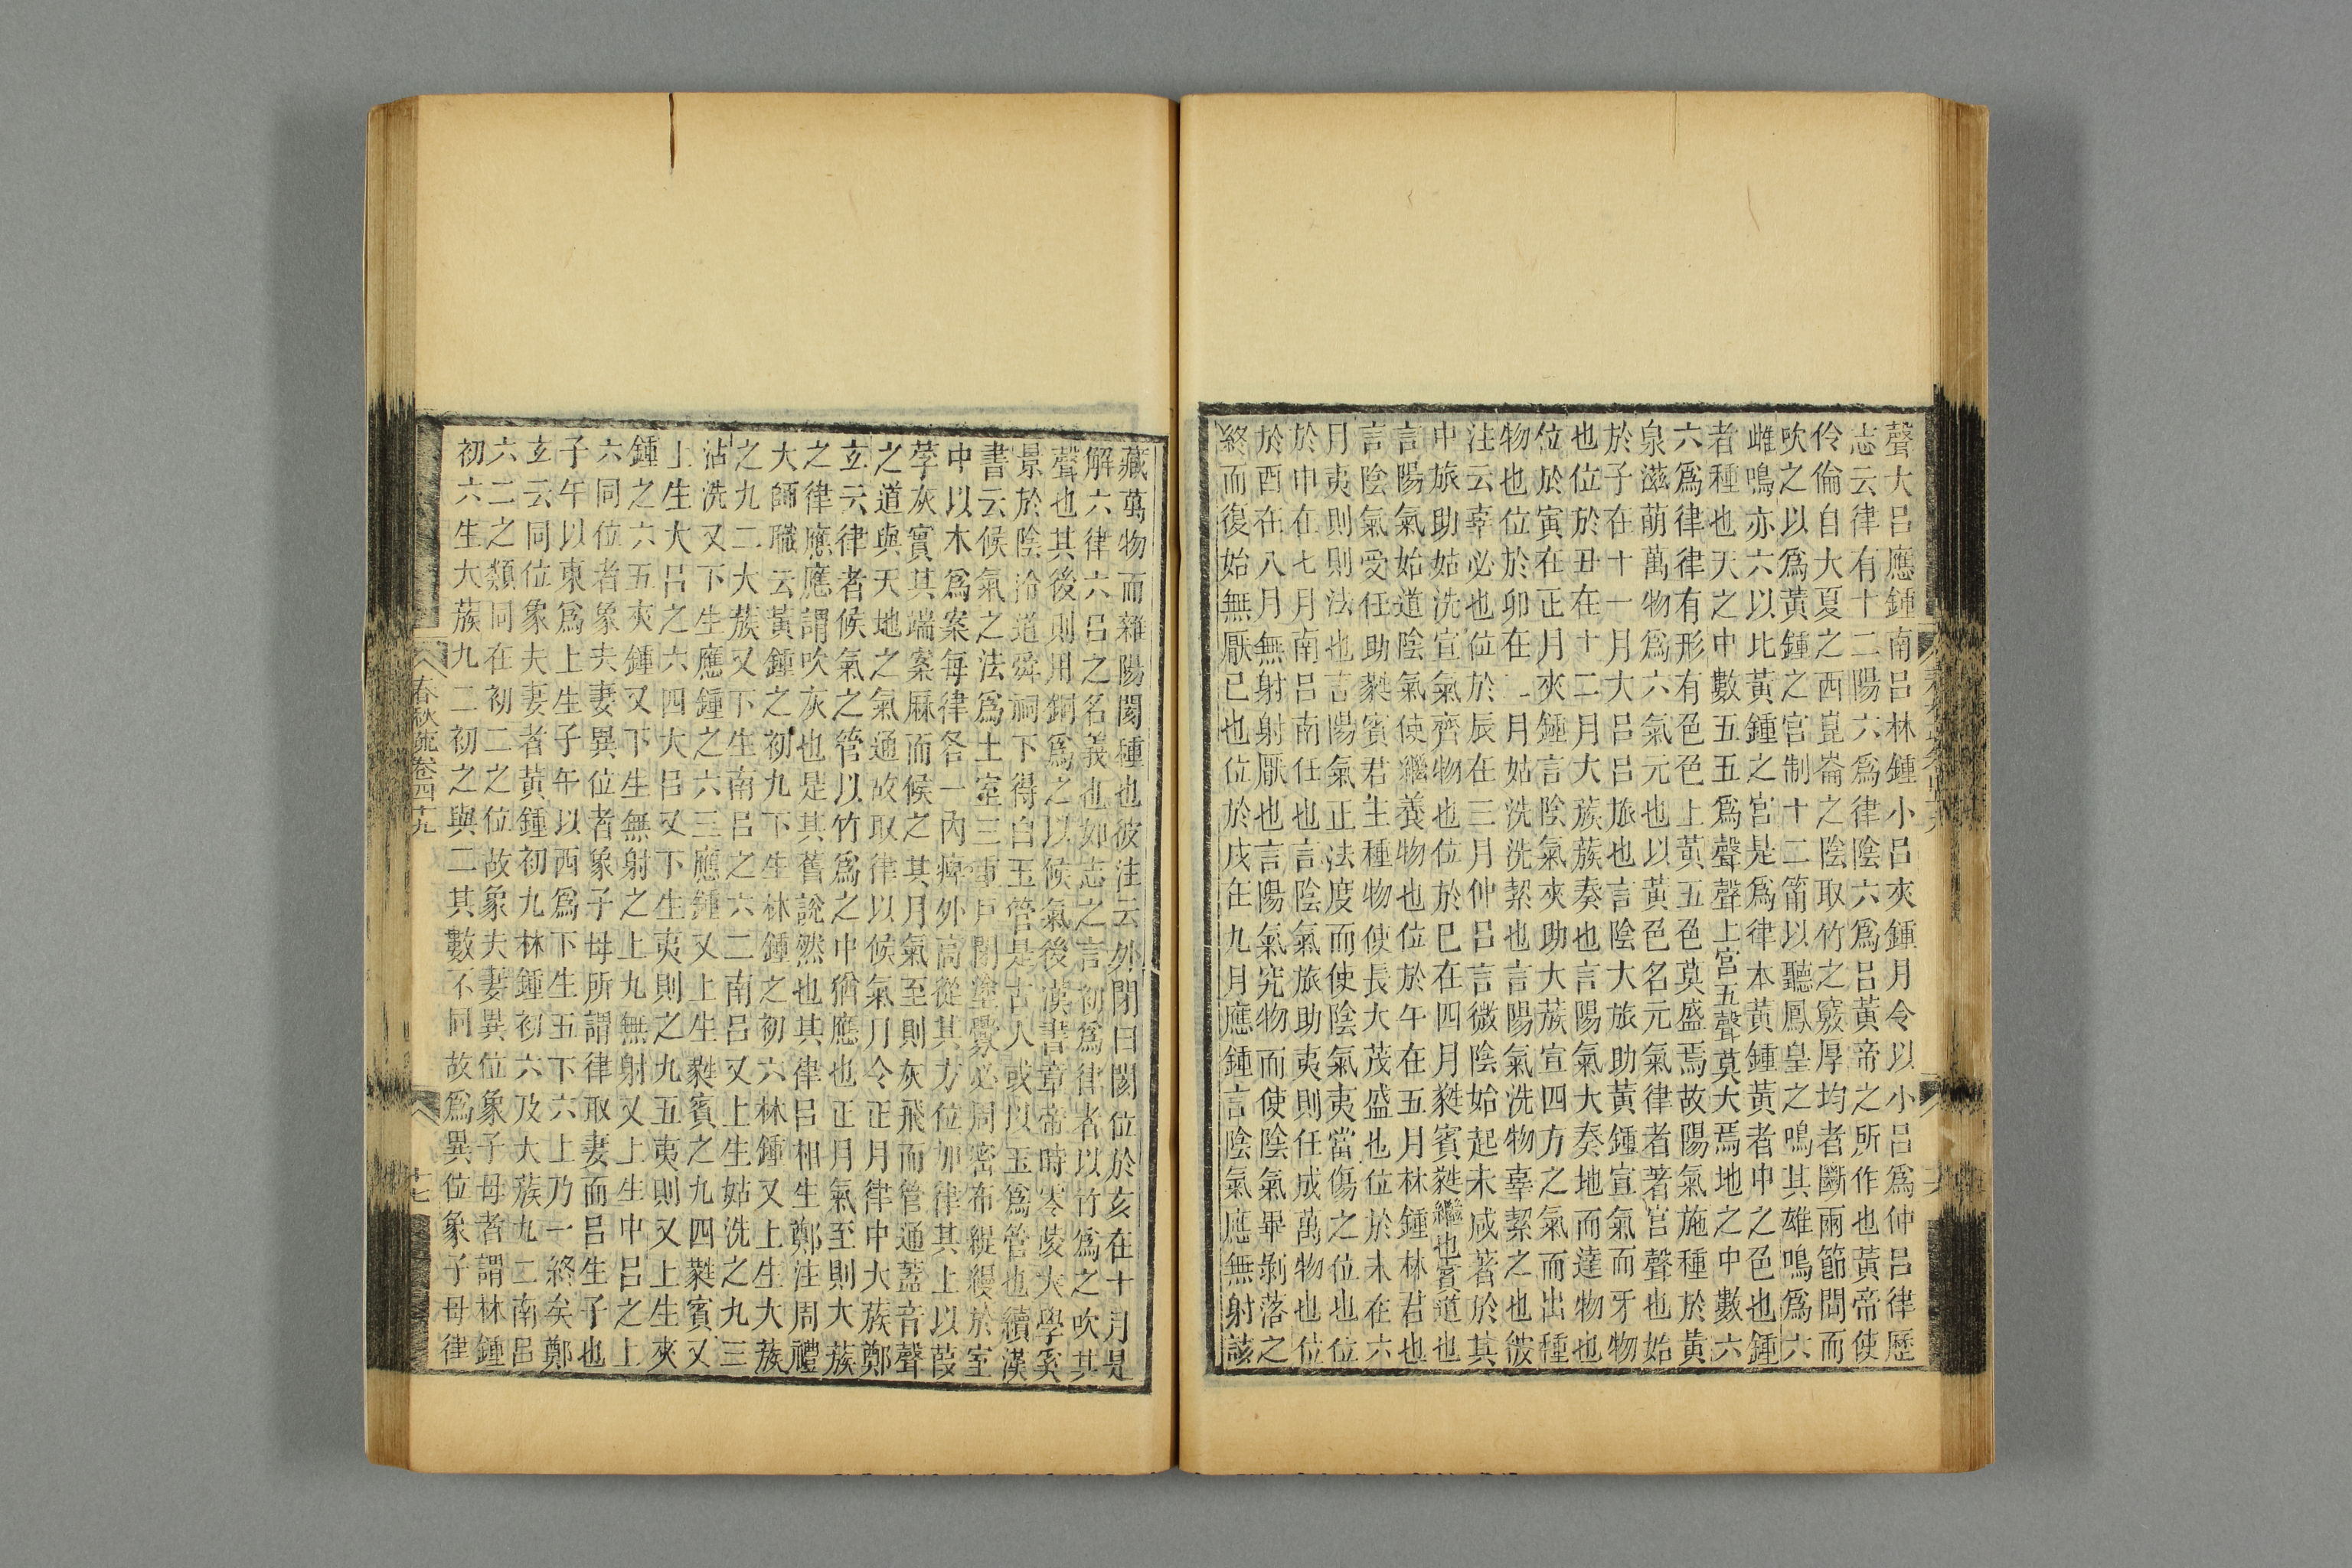 聲大呂應鍾南呂林鍾小呂夾鍾月令以小呂爲仲呂律歷
志云律有十二陽六爲律陰六爲呂黃帝之所作也黃帝使
伶倫自大夏之西崑崙之陰取竹之竅厚均者斷兩節間而
吹之以爲黃鍾之宮制十二筩以聽鳳皇之鳴其雄鳴爲六
雌鳴亦六以比黃鍾之宮是爲律本黃鍾黃者中之色也鍾
者種也天之中數五五爲聲聲上宮五聲莫大焉地之中數六
六爲律律有形有色色上黃五色莫盛焉故陽氣施種於黃
泉滋萌萬物爲六氣元也以黃色名元氣律者著宮聲也始
於子在十一月大呂呂旅也言陰大旅助黃鍾宣氣而牙物
也位於丑在十二月大族族奏也言陽氣大奏地而達物也
位於寅在正月夾鍾言陰氣夾助大族宣四方之氣而出種
物也位於卯在二月姑洗洗絜也言陽氣洗物辜絜之也彼
注云辜必也位於辰在三月仲呂言微陰始起未成著於其
中旅助姑洗宣氣齊物也位於巳在四月蕤賓蕤繼也賓道也
言陽氣始道陰氣使繼養物也位於午在五月林鍾林君也
言陰氣受任助蕤賓君主種物使長大茂盛也位於未在六
月夷則則法也言陽氣正法度而使陰氣夷當傷之位也位
於申在七月南呂南任也言陰氣旅助夷則任成萬物也位
於酉在八月無射射厭也言陽氣究物而使陰氣畢剝落之
終而復始無厭已也位於戌在九月應鍾言陰氣應無射該
藏萬物而雜陽閡種也彼注云外閉曰閡位於亥在十月是
解六律六呂之名義也如志之言初爲律者以竹爲之吹其
聲也其後則用銅爲之以候氣後漢書章帝時零陵大學奚
景於陰泠道舜祠下得白玉管是古人或以玉爲管也續漢
書云候氣之法爲土室三重戸閉塗釁必周密布緹縵於室
中以木爲案每律各一內痺外高從其方位加律其上以葭
莩灰實其端案厤而候之其月氣至則灰飛而管通蓋音聲
之道與天地之氣通故取律以候氣月令正月律中大蔟鄭
玄云律者候氣之管以竹爲之中猶應也正月氣至則大蔟
之律應應謂吹灰也是其舊說然也其律呂相生鄭注周禮
大師職云黃鍾之初九下生林鍾之初六林鍾又上生大蔟
之九二大蔟又下生南呂之六二南呂又上生姑洗之九三
沽洗又下生應鍾之六三應鍾又上生蕤賓之九四蕤賓又
上生大呂之六四大呂又下生夷則之九五夷則又上生夾
鍾之六五夾鍾又下生無射之上九無射又上生中呂之上
六同位者象夫妻異位者象子母所謂律取妻而呂生子也
子午以東爲上生子午以西爲下生五下六上乃一終矣鄭
玄云同位象夫妻者黃鍾初九林鍾初六及大蔟九二南呂
六二之類同在初二之位故象夫妻異位象子母者謂林鍾
初六生大蔟九二初之與二其數不同故爲異位象子母律
春秋疏卷四十九
十七